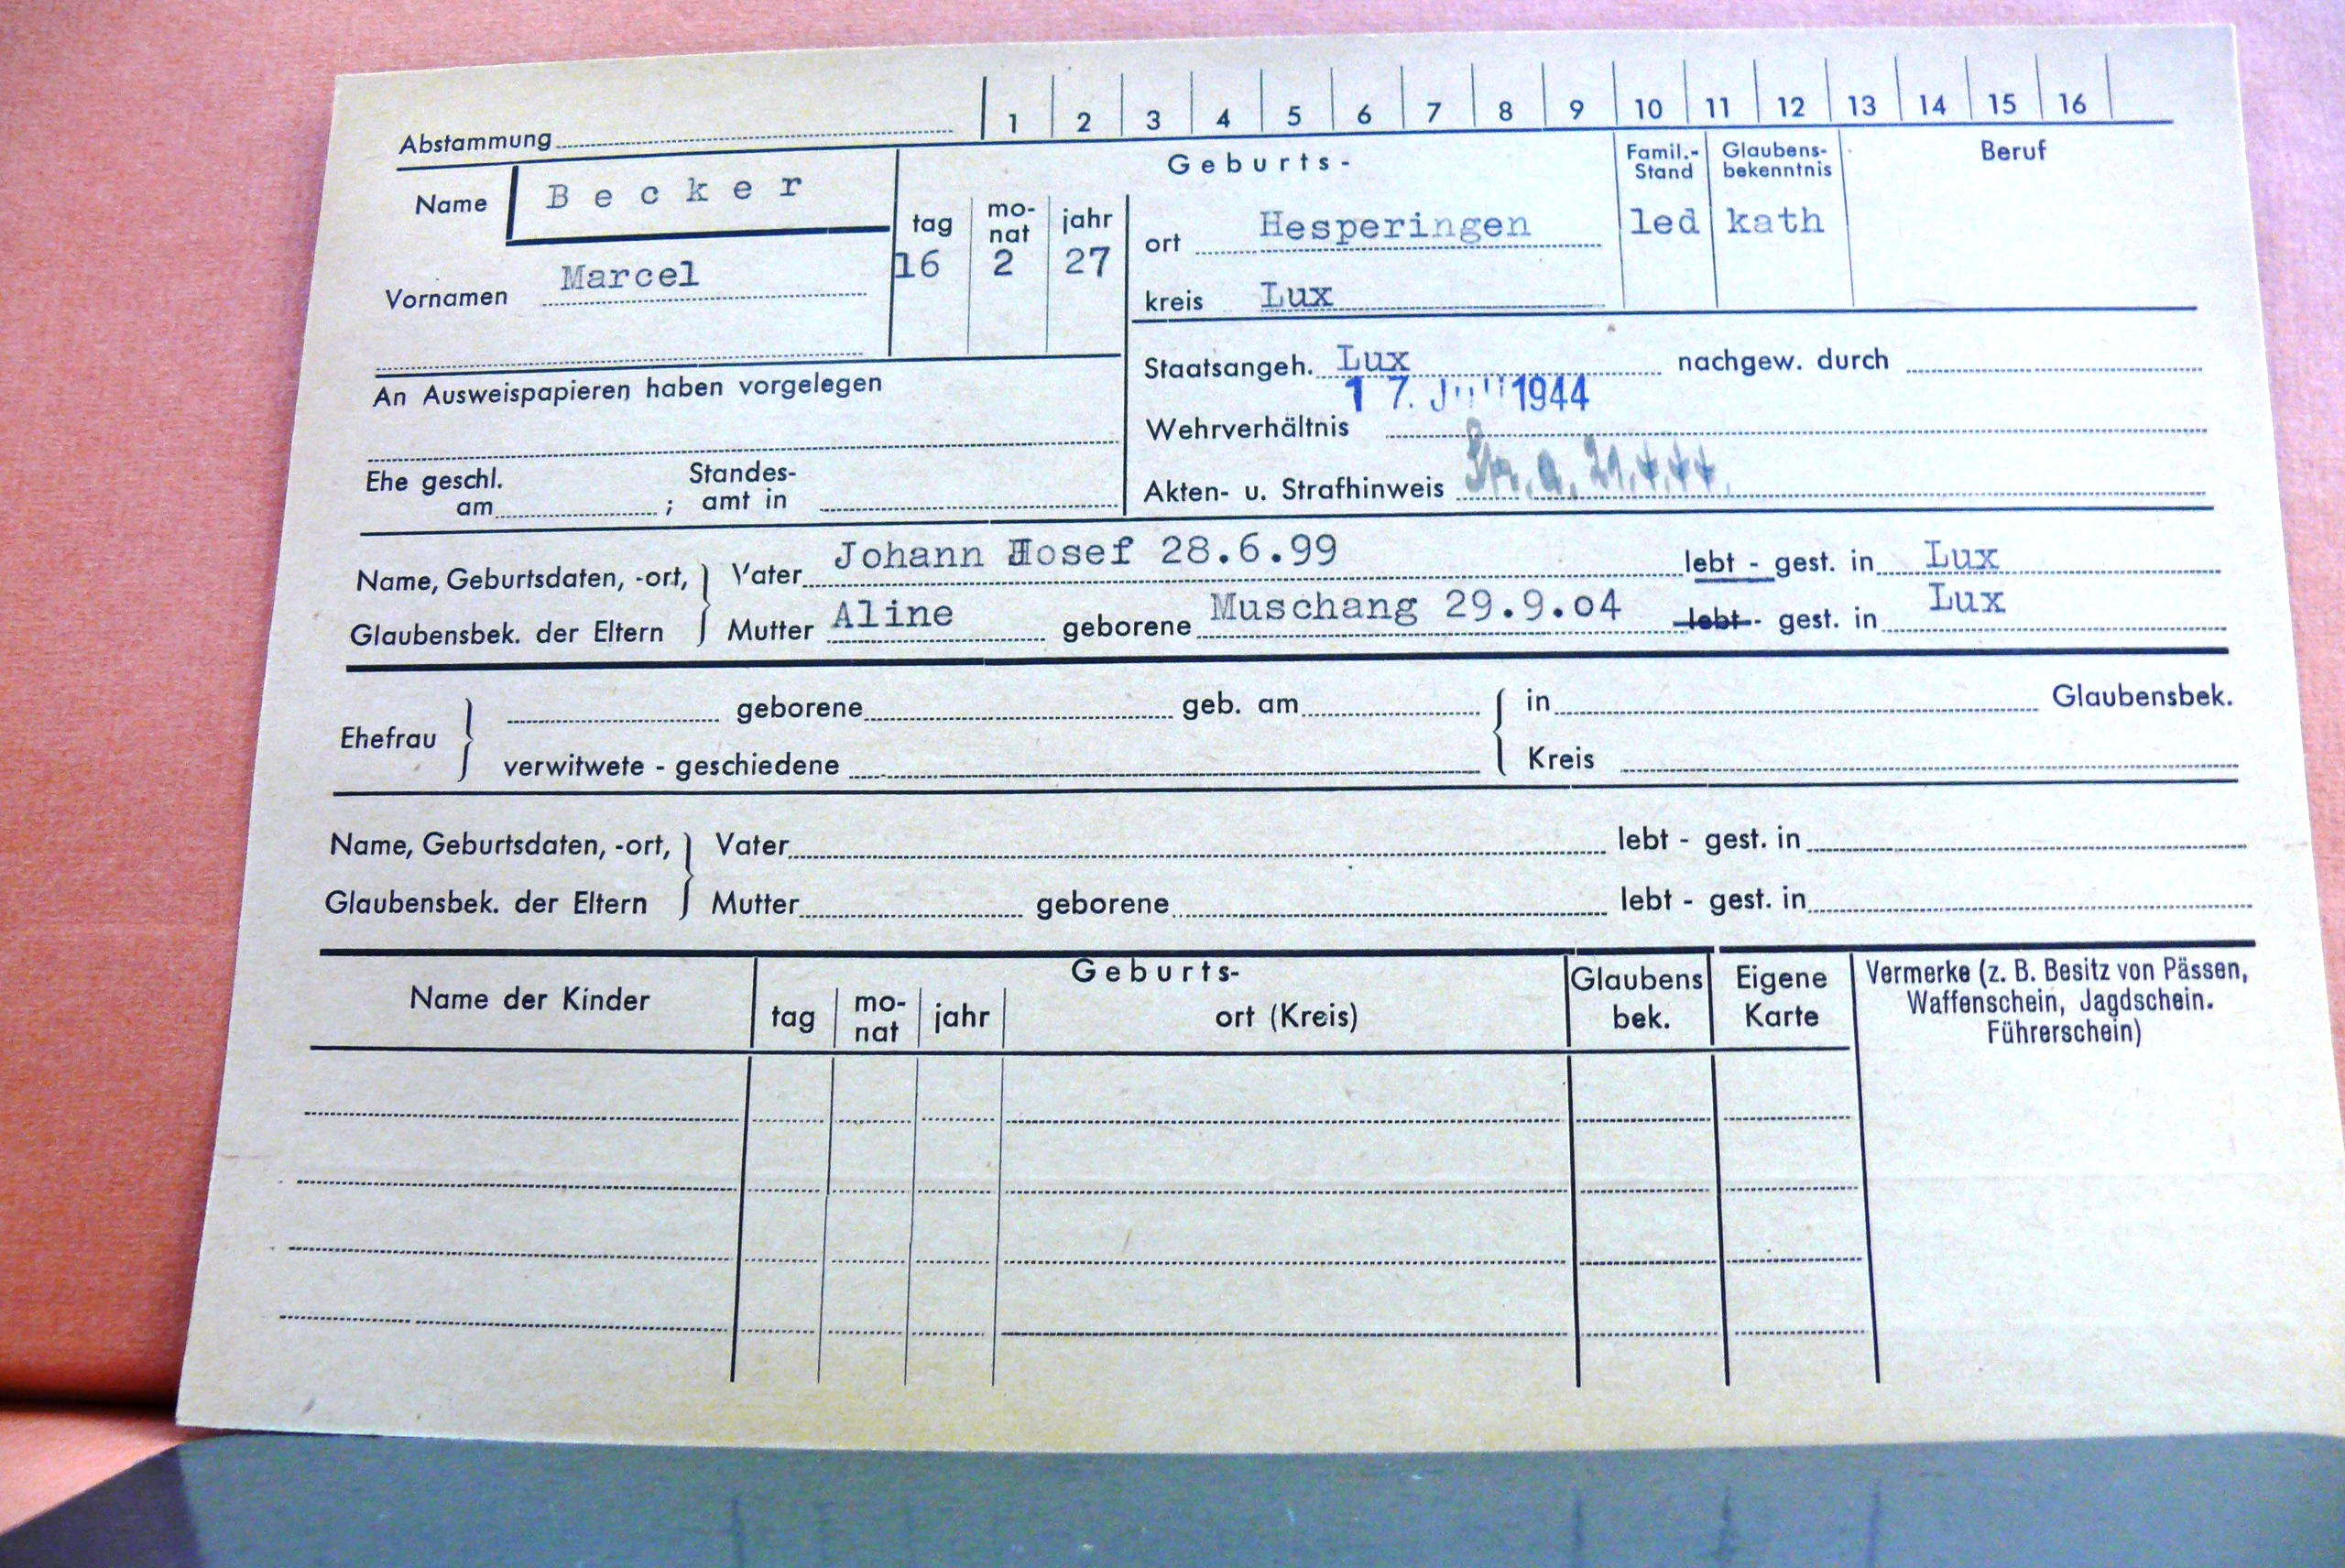 Abstammung 1 2 3 4 5 6 7 8 9 10 11 12 13 14 15 16
Name Becker Geburts- Famil.- Glaubens- Beruf
Stand bekenntnis
tag mo- jahr ort Hesperingen led kath
nat
Vornamen Marcel 16 2 27 kreis Lux
Staatsangeh. Lux nachgew. durch
An Ausweispapieren haben vorgelegen 17. 1944
Wehrverhältnis
Ehe geschl. Standes- Akten- u. Strafhinweis
am ; amt in
Name, Geburtsdaten, -ort, Vater Johann Josef 28.6.99 lebt - gest. in Lux
Glaubensbek. der Eltern Mutter Aline geborene Muschang 29.9.04 lebt - gest. in Lux
Ehefrau geborene geb. am in Glaubensbek.
verwitwete - geschiedene Kreis
Name, Geburtsdaten, -ort, Vater lebt - gest. in
Glaubensbek. der Eltern Mutter geborene lebt - gest. in
Name der Kinder Geburts- Glaubens Eigene Vermerke (z. B. Besitz von Pässen,
tag mo- jahr ort (Kreis) bek. Karte Waffenschein, Jagdschein.
nat Führerschein)